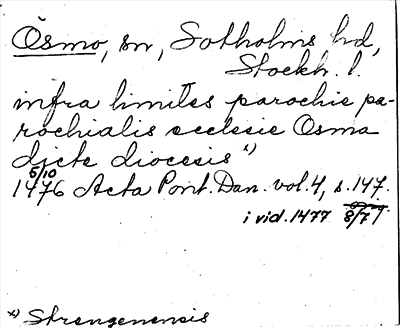 Ösmo, sn, Sotholms hd,
Stockh. l.
infra limites parochie pa-
rochialis ecclesie Osma
dicte diocesis x)
5/10
1476 Acta Pont. Dan. vol. 4, s. 147.
i vid. 1477 8/7
x) Strengenensis